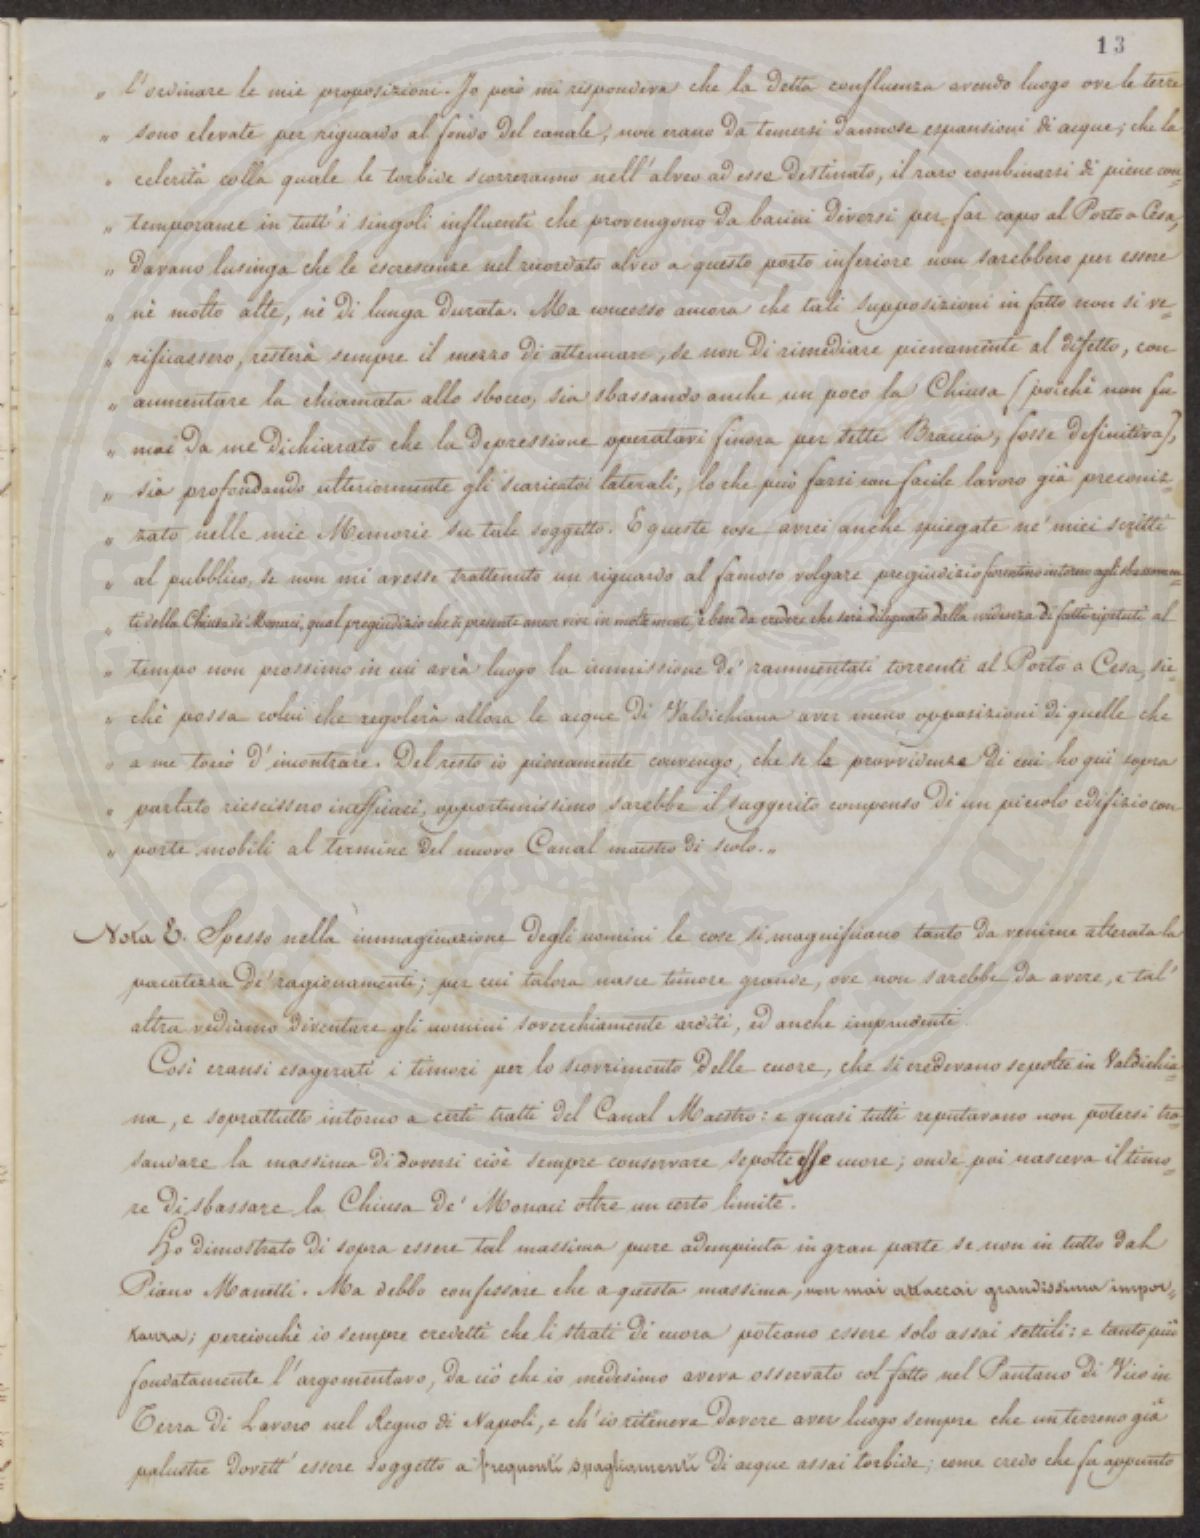 13
„ l'ordinare le mie proposizioni. Io però mi rispondeva che la detta confluenza avendo luogo ove le terre
„ sono elevate per riguardo al fondo del canale, non erano da temersi dannose espansioni di acque; che la
„ celerità colla quale le torbide scorreranno nell'alveo ad esse destinato, il raro combinarsi di piene con=
„ temporanee in tutt'i singoli influenti che provengono da bacini diversi per far capo al Porto a Cesa,
„ davano lusinga che le escrescenze nel ricordato alveo a questo porto inferiore non sarebbero per essere
„ nè molto alte, nè di lunga durata. Ma concesso ancora che tali supposizioni in fatto non si ve=
„ rificassero, resterà sempre il mezzo di attenuare, se non di rimediare pienamente al difetto, con
„ aumentare la chiamata allo sbocco, sia sbassando anche un poco la Chiusa (poichè non fu
„ mai da me dichiarato che la depressione operatavi finora per sette Braccia, fosse definitiva),
„ sia profondando ulteriormente gli scaricatoi laterali, lo che può farsi con facile lavoro già preconiz=
„ zato nelle mie Memorie su tale soggetto. E queste cose avrei anche spiegate ne' miei scritti
„ al pubblico, se non mi avesse trattenuto un riguardo al famoso volgare pregiudizio fiorentino intorno agli sbassamen=
„ ti della Chiusa de' Monaci, qual pregiudizio che di presente ancor vive in molte menti, è ben da credere che sarà dileguato dalla evidenza di fatti ripetuti al
„ tempo non prossimo in cui avrà luogo la immissione de' rammentati torrenti al Porto a Cesa, sic=
„ chè possa colui che regolerà allora le acque di Valdichiana aver meno opposizioni di quelle che
„ a me toccò d'incontrare. Del resto io pienamente convengo, che se le provvidenze di cui ho quì sopra
„ parlato riescissero inefficaci, opportunissimo sarebbe il suggerito compenso di un piccolo edifizio con
„ porte mobili al termine del nuovo Canal maestro di scolo. „
Nota E. Spesso nella immaginazione degli uomini le cose si magnificano tanto da venirne alterata la
pacatezza de' ragionamenti; per cui talora nasce timore grande, ove non sarebbe da avere, e tal'
altra vediamo diventare gli uomini soverchiamente arditi, ed anche imprudenti.
Così eransi esagerati i timori per lo scorrimento delle cuore, che si credevano sepolte in Valdichia=
na, e soprattutto intorno a certi tratti del Canal Maestro: e quasi tutti reputavano non potersi tra=
sandare la massima di doversi cioè sempre conservare sepolte esse cuore; onde poi nasceva il timo=
re di sbassare la Chiusa de' Monaci oltre un certo limite.
Ho dimostrato di sopra essere tal massima pure adempiuta in gran parte se non in tutto dal
Piano Manetti. Ma debbo confessare che a questa massima, non mai attaccai grandissima impor=
tanza; perciochè io sempre credetti che li strati di cuora poteano essere solo assai sottili: e tanto più
fondatamente l'argomentavo, da ciò che io medesimo aveva osservato col fatto nel Pantano di Vico in
Terra di Lavoro nel Regno di Napoli, e ch'io riteneva dovere aver luogo sempre che un terreno già
palustre dovett'essere soggetto a frequenti spagliamenti di acque assai torbide; come credo che fu appunto